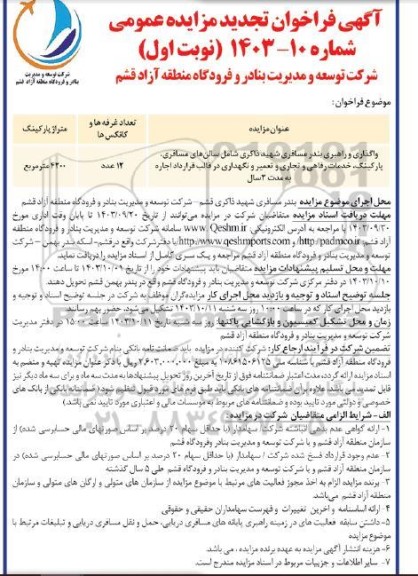 آگهی فراخوان تجدید مزایده عمومی
شماره ۱۰-۱۴۰۳ (نوبت اول)
شرکت توسعه و مدیریت بنادر و فرودگاه منطقه آزاد قشم
شرکت توسعه و مدیریت
بنادر و فرودگاه منطقه آزاد قشم
موضوع فراخوان:
عنوان مزایده
تعداد غرفه ها و کانکس ها
متراژ پارکینگ
واگذاری و راهبری بندر مسافری شهید ذاکری شامل سالن‌های مسافری،
پارکینگ، خدمات رفاهی و تجاری و تعمیر و نگهداری در قالب قرارداد اجاره
به مدت ۳ سال
۱۲ عدد
۴۲۰۰ مترمربع
محل اجرای موضوع مزایده بندر مسافری شهید ذاکری قشم - شرکت توسعه و مدیریت بنادر و فرودگاه منطقه آزاد قشم
مهلت دریافت اسناد مزایده متقاضیان شرکت در مزایده می‌توانند از تاریخ ۱۴۰۳/۰۹/۲۰ تا پایان وقت اداری مورخ
۱۴۰۳/۰۹/۳۰ با مراجعه به آدرس الکترونیکی www.Qeshm.ir سامانه شرکت توسعه و مدیریت بنادر و فرودگاه منطقه
آزاد قشم http://padmco.ir و http://qeshmports.com یا دفتر شرکت واقع در قشم- اسکله بندر بهمن – شرکت
توسعه و مدیریت بنادر و فرودگاه منطقه آزاد قشم مراجعه و یک سری کامل از اسناد مزایده را دریافت نمایند.
مهلت و محل تسلیم پیشنهادات مزایده متقاضیان باید پیشنهادات خود را از تاریخ ۱۴۰۳/۱۰/۰۱ تا ساعت ۱۴:۰۰ مورخ
۱۴۰۳/۱۰/۱۰ در دفتر مرکزی شرکت توسعه و مدیریت بنادر و فرودگاه منطقه آزاد قشم واقع در بندر بهمن قشم تحویل دهند
جلسه توضیح اسناد و توجیه و بازدید محل اجرای کار مزایده‌گران موظف به شرکت در جلسه توضیح اسناد و توجیه و
بازدید محل اجرای کار که در ساعت ۱۰:۰۰ روز سه شنبه تشکیل می‌شود، حضور بهم رسانند.
زمان و محل تشکیل کمیسیون و بازگشایی پاکتها: روز سه شنبه تاریخ ۱۴۰۳/۱۰/۱۱ ساعت ۱۵:۰۰ در دفتر مدیریت
شرکت توسعه و مدیریت بنادر و فرودگاه منطقه آزاد قشم
تضمین شرکت در فرآیند ارجاع کار: شرکت کننده در مزایده باید ضمانتنامه بانکی بنام شرکت توسعه و مدیریت بنادر و
فرودگاه منطقه آزاد قشم با شناسه ملی به مبلغ ۲,۶۰۳,۰۰۰,۰۰۰ ریال با ذکر عنوان مزایده تهیه و منضم به
الف - شرایط الزامی متقاضیان شرکت در مزایده:
سازمان منطقه آزاد قشم و یا شرکت توسعه و مدیریت بنادر و فرودگاه قشم
۲- عدم وجود قرارداد فسخ شده شرکت / سهامدار (با حداقل سهام ۲۰ درصد بر اساس صورتهای مالی حسابرسی شده) در
سازمان منطقه آزاد قشم و یا شرکت توسعه و مدیریت بنادر و فرودگاه منطقه آزاد قشم طی ۵ سال گذشته
۳- برنده مزایده الزام به اخذ مجوز فعالیت های مرتبط با موضوع مزایده از سازمان های متولی و ارگان های متولی و سازمان
منطقه آزاد قشم می‌باشد
۴- ارائه اساسنامه و آخرین تغییرات و فهرست سهامداران حقیقی و حقوقی
۵- داشتن سابقه فعالیت های در زمینه راهبری پایانه های مسافری دریایی، حمل و نقل مسافری دریایی و تبلیغات مرتبط با
موضوع مزایده
۶- هزینه انتشار آگهی مزایده به عهده برنده مزایده می باشد.
۷- سایر اطلاعات و جزییات مربوط در اسناد مزایده مندرج است.